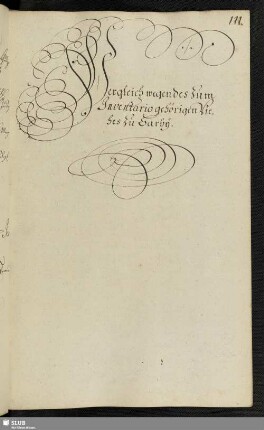 111.
Vergleich wegen des zum
Inventario gehörigen Vie-
hes zu Barby.
SLUB